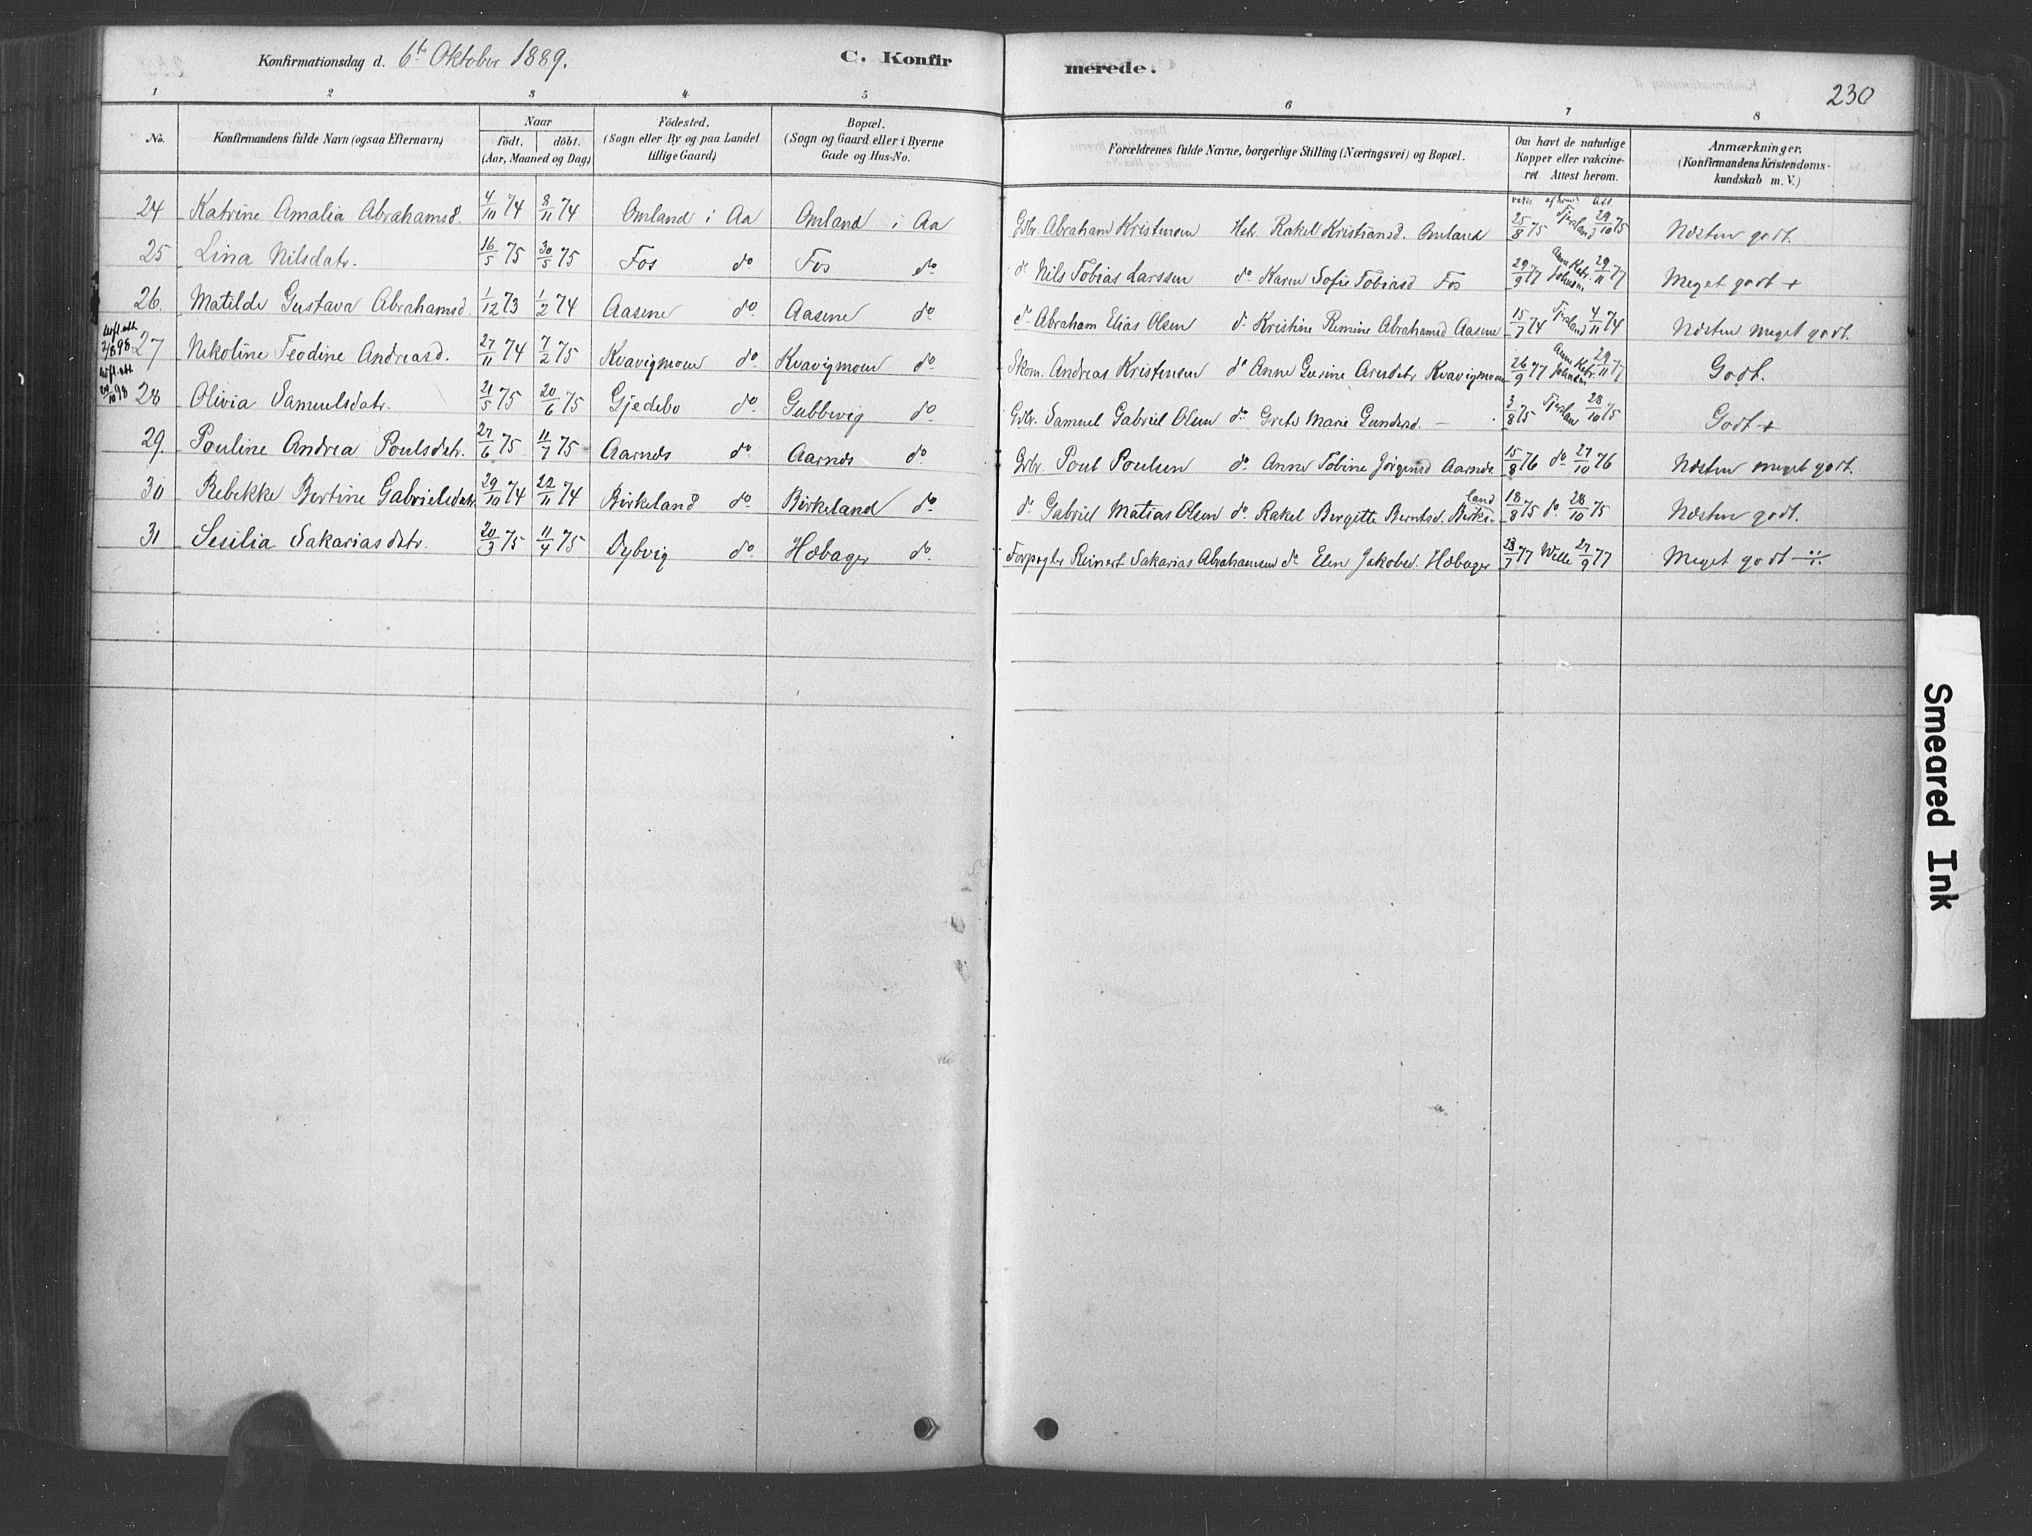 Konfirmationsdag d. 6te Oktober 1889. C. Konfir merede. 230
1 2 3 4 5 6 7 8
No. Konfirmandens fulde Navn (ogsaa Efternavn) Naar födt. döbt. (Aar, Maaned og Dag) Födested. (Sogn eller By og paa Landet tillige Gaard) Bopæl. (Sogn og Gaard eller i Byerne Gade og Hus-No. Forældrenes fulde Navne, borgerlige Stilling (Næringsvei) og Bopæl. Om havt de naturlige Kopper eller vakcineret Attest herom. Anmærkninger. (Konfirmandens Kristendomskundskab m. V.)
24 Katrine Amalia Abrahamsd. 4/10 74 8/11 74 Omland i Aa Omland i Aa Gbr. Abraham Kristensen Hstr. Rakel Kristiansd. Omland 25/8 75 Fjersland 29/10 75 Næsten godt.
25 Lina Nilsdatr. 16/5 75 30/5 75 Fos do Fos do do Nils Tobias Larssen do Karen Sofie Tobiasd Fos 29/9 77 Anne Katr. Johnsen 29/11 77 Meget godt +
26. Matilde Gustava Abrahamsd. 1/12 73 1/2 74 Aasene do Aasene do do Abraham Elias Olsen do Kristine Remine Abrahamsd Aasene 15/7 74 Fjersland 4/11 74 Næsten meget godt.
2/8 98 27 Nikoline Teodine Andreasd. 27/11 74 7/2 75 Kvavigmoen do Kvavigmoen do Skom. Andreas Kristensen do Anne Gurine Arnsdatr Kvavigmoen 26/9 77 Anne Katr. Johnsen 29/11 77 Godt.
20/10 98 28 Olivia Samuelsdatr. 21/5 75 20/6 75 Gjedebo do Gubbevig do Gbr. Samuel Gabriel Olsen do Grete Marie Gundersd. — 3/8 75 Fjersland 28/10 75 Godt +
29. Pouline Andrea Poulsdatr. 27/6 75 11/7 75 Aarnes do Aarnes do Gbr. Poul Poulsen do Anne Tobine Jörgensd Aarnes 15/8 76 do 27/10 76 Næsten meget godt.
30 Rebekke Bertine Gabrielsdatr. 29/10 74 22/11 74 Birkeland do Birkeland do do Gabriel Matias Olsen do Rakel Birgitte Berntsd. Birkeland 18/8 75 do 28/10 75 Næsten godt.
31 Sesilia Sakariasdatr. 20/3 75 11/4 75 Dybvig do Hæbager do Forpagter Reinert Sakarias Abrahamsen do Elen Jakobsd. Hæbager 23/7 77 Wille 27/9 77 Meget godt ÷
Smeared Ink